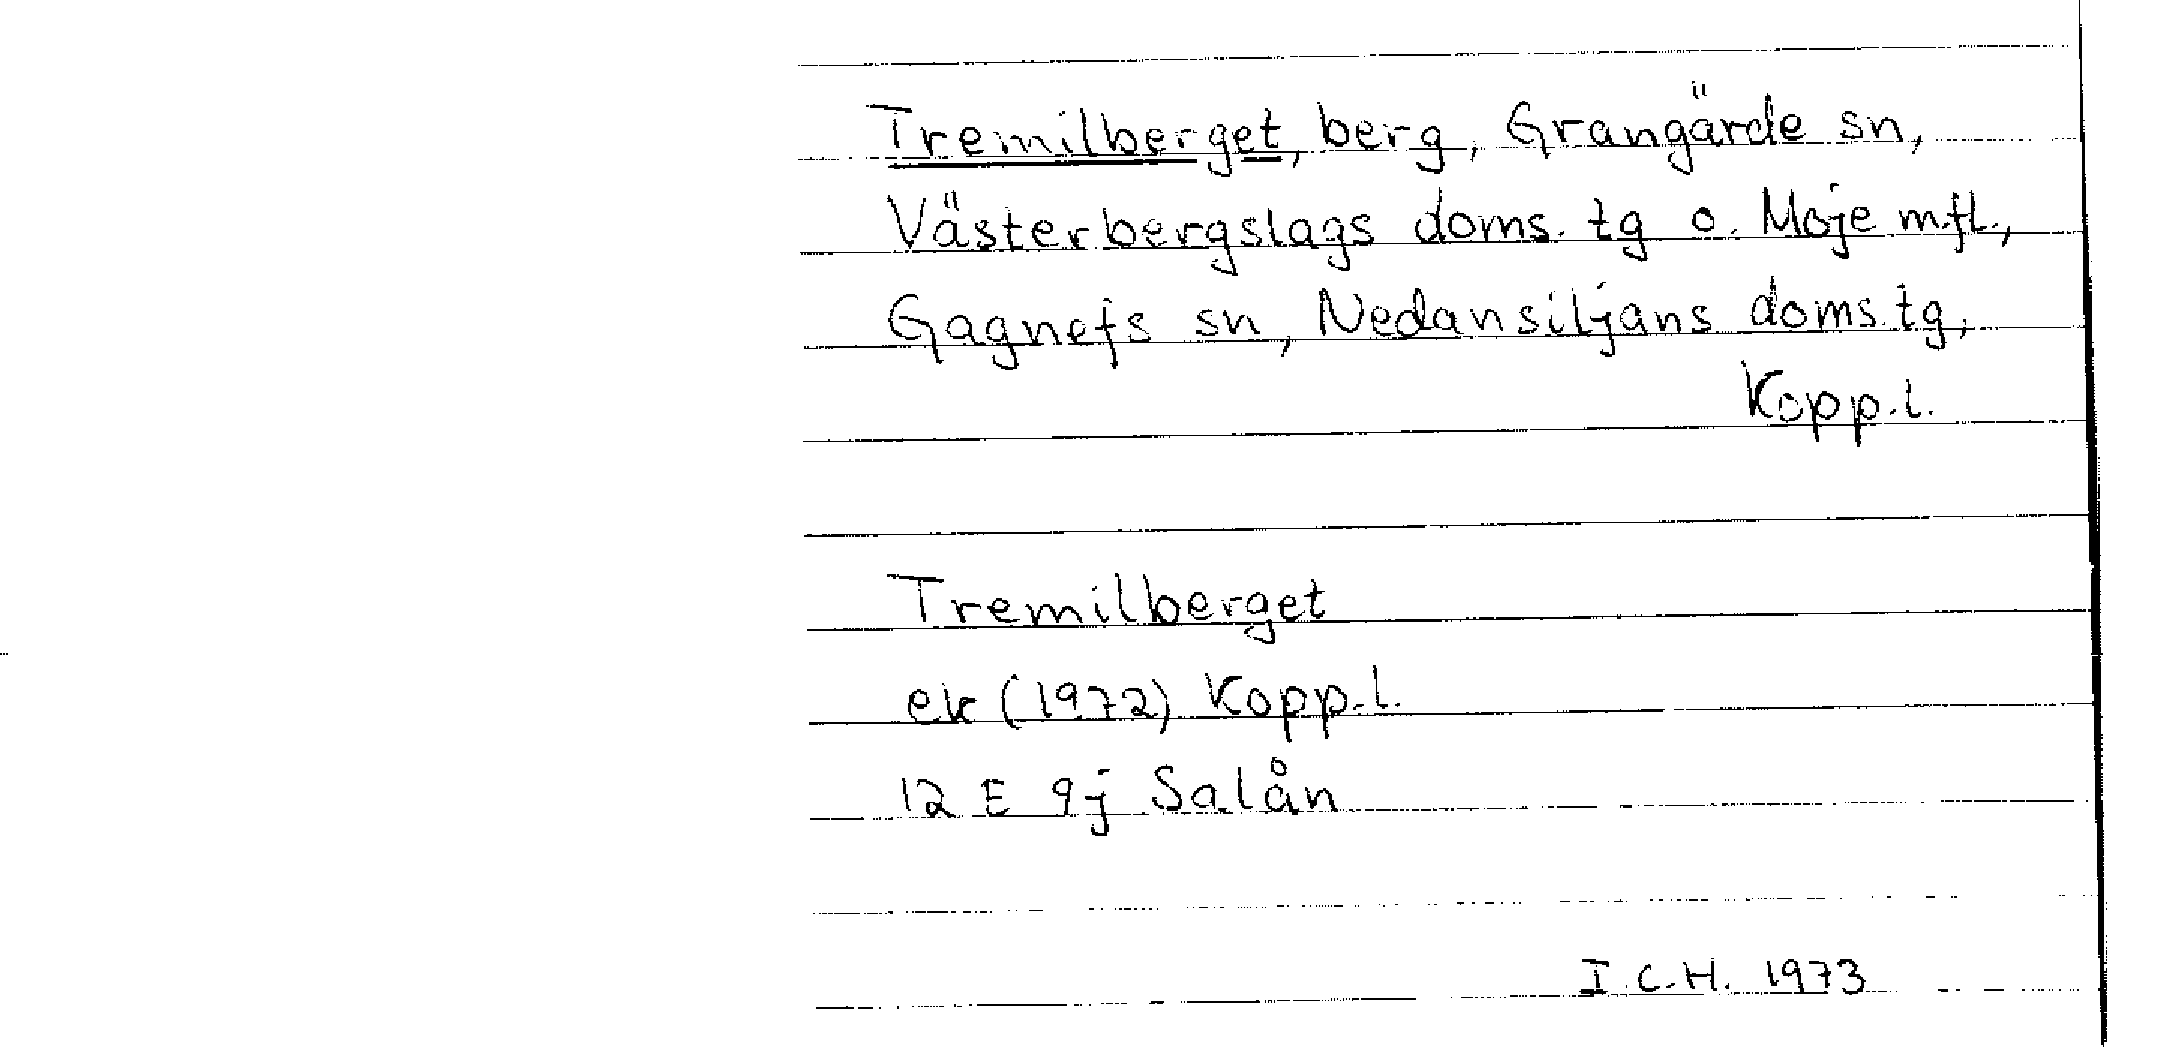 Tremilberget, berg, Grangärde sn,
Västerbergslags doms. tg o. Moje m.fl.,
Gagnefs sn, Nedansiljans doms. tg,
Kopp.l.
Tremilberget
ek (1972) Kopp.l.
12 E 9j Salån
I.C.H. 1973